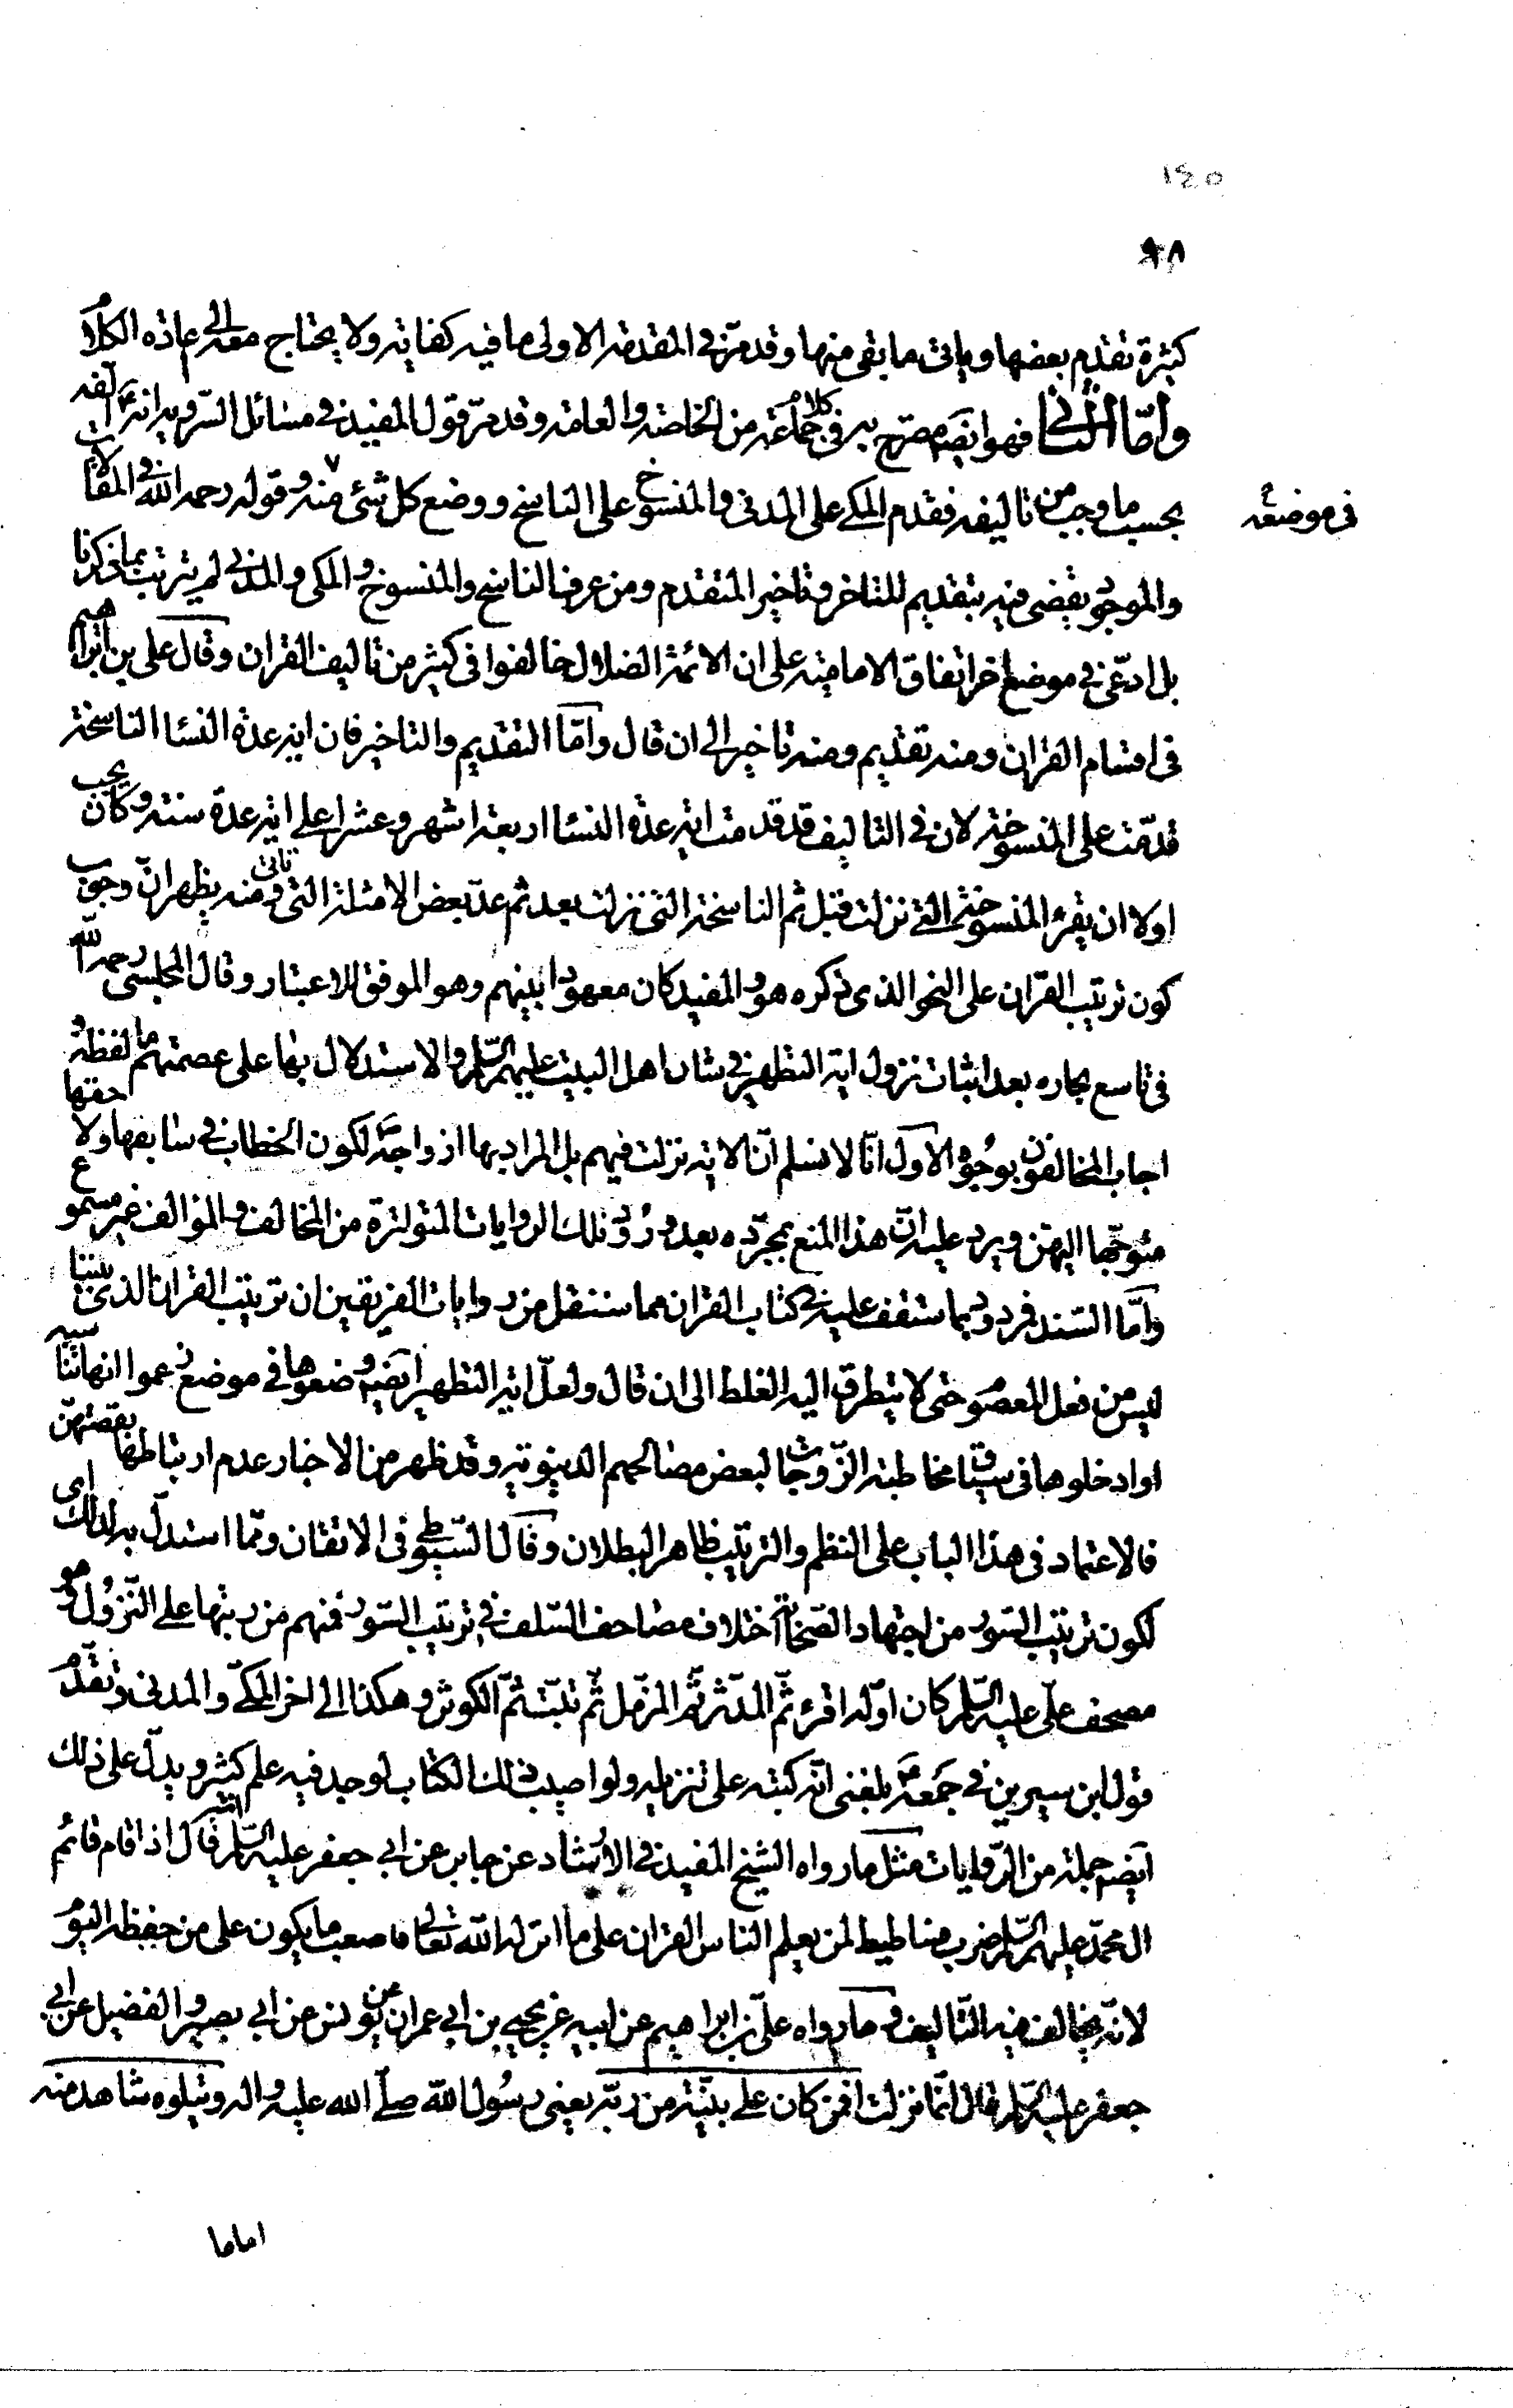 ١٤٥
٩٨
كثيرة تقدم بعضها وياتى ما بقى منها وقد مرّ فى المقدمة الاولى ما فيه كفاية ولا يحتاج معه الى اعادة الكلام
وامّا الثانى فهو ايضا مصرّح به فى كلام جماعة من الخاصة والعامة وقد مرّ قول المفيد فى مسائل السروية انه الّفه
بحسب ما وجب من تاليفه فقدم المكى على المدنى والمنسوخ على الناسخ ووضع كل شئ منه وقوله رحمه الله فى المقالات
فى موضعه
والموجود يقضى فيه بتقديم المتاخر وتاخير المتقدم ومن عرف الناسخ والمنسوخ والمكى والمدنى لم يرتب بما ذكرنا
بل ادّعى فى موضع اخر اتفاق الامامية على ان الائمة الضلال خالفوا فى كثير من تاليف القران وقال على بن ابراهيم
فى اقسام القران ومنه تقديم ومنه تاخير الى ان قال وامّا التقديم والتاخير فان اية عدة النسا الناسخة
قدّمت على المنسوخة لان فى التاليف قد قدمت اية عدة النسا اربعة اشهر وعشرا على اية عدة سنة وكان يجب
اولا ان يقرء المنسوخة التى نزلت قبل ثم الناسخة التى نزلت بعد ثم عدّ بعض الامثلة التى تاتى ومنه يظهر انّ وجوب
كون ترتيب القران على النحو الذى ذكره هو والمفيد كان معهودا بينهم وهو الموفق للاعتبار وقال المجلسى رحمه الله
فى تاسع بحاره بعد اثبات نزول اية التطهير فى شان اهل البيت عليهم السلام والاستدلال بها على عصمتهم ما لفظه و
اجاب المخالفون بوجوه الاول انّا لا نسلم انّ الاية نزلت فيهم بل المراد بها ازواجه لكون الخطاب فى سابقها ولاحقها
متوجّها اليهن ويرد عليه انّ هذا المنع بمجرّده بعد ورود تلك الروايات المتواترة من المخالف والموالف غير مسموع
وامّا السّند فمردود بما ستقف عليه فى كتاب القران مما سننقل من روايات الفريقين ان ترتيب القران الذى بيننا
ليس من فعل المعصوم حتى لا يتطرق اليه الغلط الى ان قال ولعلّ اية التطهير ايضا وضعوها فى موضع زعموا انها تناسبه
او ادخلوها فى سياق مخاطبة الزّوجات لبعض مصالحهم الدنيوية وقد ظهر من الاخبار عدم ارتباطها بقصتهنّ
فالاعتماد فى هذا الباب على النظم والترتيب ظاهر البطلان وقال السّيوطى فى الاتقان وممّا استدلّ به لذلك اى
لكون ترتيب السور من اجتهاد الصّحابة اختلاف مصاحف السّلف فى ترتيب السّور فمنهم من رتبها على النّزول وهو
مصحف علّى عليه السلام كان اوّله اقرء ثّم المدّثر ثّم المزّمل ثّم تبّت ثّم الكوثر وهكذا الى اخر المكىّ والمدنى وتقدّم
قول ابن سيرين فى جمعه بلغنى انّه كتبه على تنزيله ولو اصيب ذلك الكتاب لوجد فيه علم كثير ويدلّ على ذلك
ايضا جملة من الرّوايات مثل ما رواه الشيخ المفيد فى الارشاد عن جابر عن ابى جعفر عليه السلام انه قال اذا قام قائم
ال محمّد عليهم السلام ضرب فساطيط لمن يعلم الناس القران على ما انزله الله تعالى فاصعب ما يكون على من حفظه اليوم
لانّه يخالف فيه التّاليف وما رواه علّى بن ابراهيم عن ابيه عن يحيى بن ابى عمران عن يونس عن ابى بصير والفضيل عن ابى
جعفر عليه السلام قال انّما نزلت افمن كان على بيّنة من ربّه يعنى رسول الله صلّى الله عليه واله ويتلوه شاهد منه
اماما